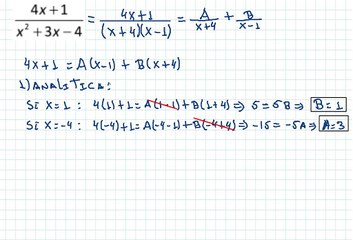 4x+1 / x² + 3x − 4 = 4x+1 / (x+4)(x−1) = A / x+4 + B / x−1
4x+1 = A(x−1) + B(x+4)
1) ANALITICA:
SI X=1 : 4(1)+1 = A(1−1) + B(1+4) ⇒ 5 = 5B ⇒ B=1
SI X=−4 : 4(−4)+1 = A(−4−1) + B(−4+4) ⇒ −15 = −5A ⇒ A=3